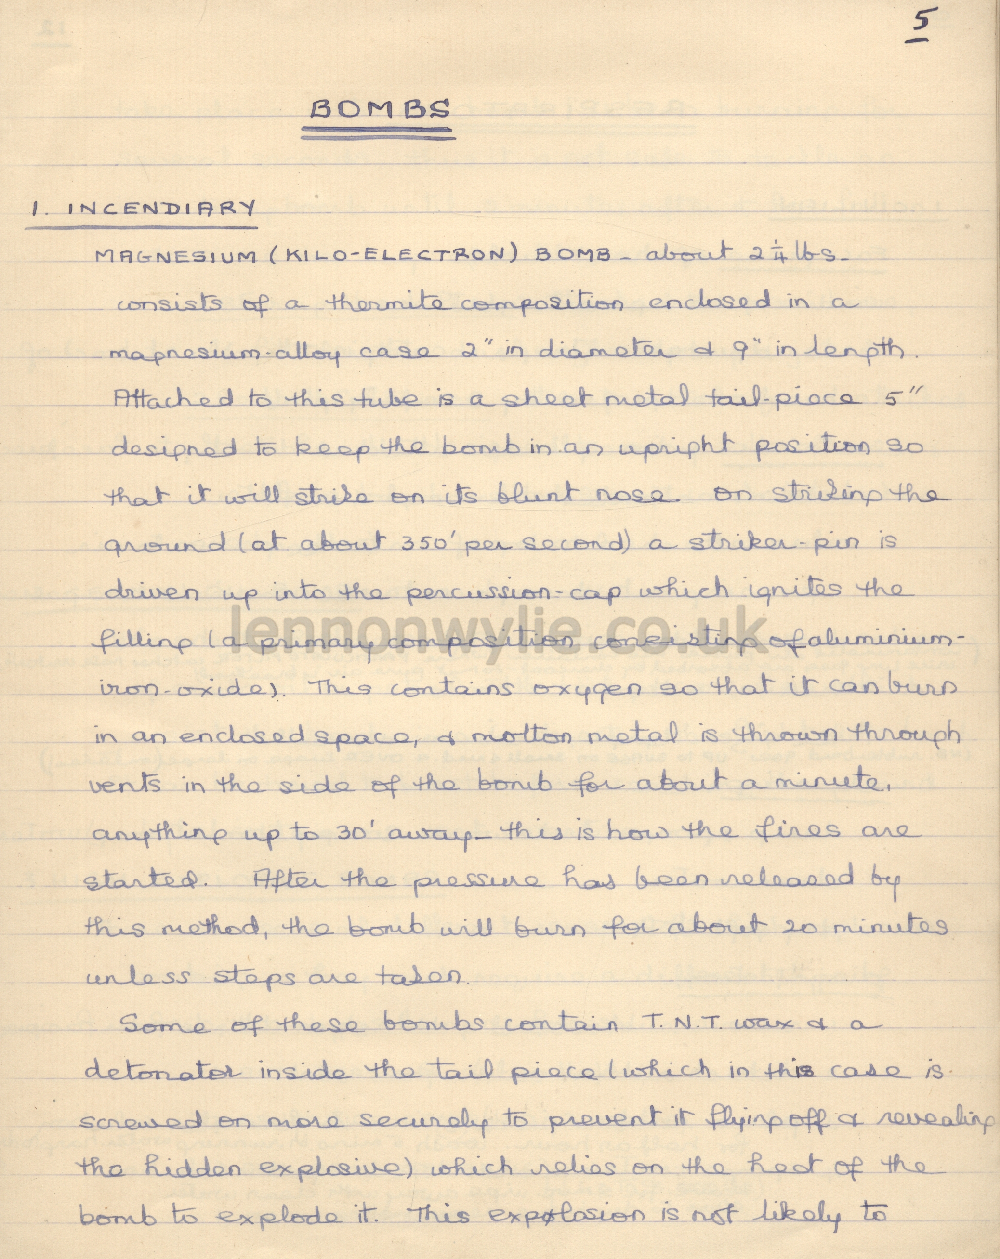 5
BOMBS
1. INCENDIARY
MAGNESIUM (KILO-ELECTRON) BOMB - about 2 1/4 lbs -
consists of a thermite composition enclosed in a
magnesium-alloy case 2" in diameter & 9" in length.
Attached to this tube is a sheet metal tail-piece 5"
designed to keep the bomb in an upright position so
that it will strike on its blunt nose. On striking the
ground (at about 350' per second) a striker-pin is
driven up into the percussion-cap which ignites the
filling (a primary composition consisting of aluminium-
iron-oxide). This contains oxygen so that it can burn
in an enclosed space, & molton metal is thrown through
vents in the side of the bomb for about a minute,
anything up to 30' away - this is how the fires are
started. After the pressure has been released by
this method, the bomb will burn for about 20 minutes
unless steps are taken.
Some of these bombs contain T.N.T. wax & a
detonator inside the tail piece (which in this case is
screwed on more securely to prevent it flying off & revealing
the hidden explosive) which relies on the heat of the
bomb to explode it. This explosion is not likely to
lennonwylie.co.uk